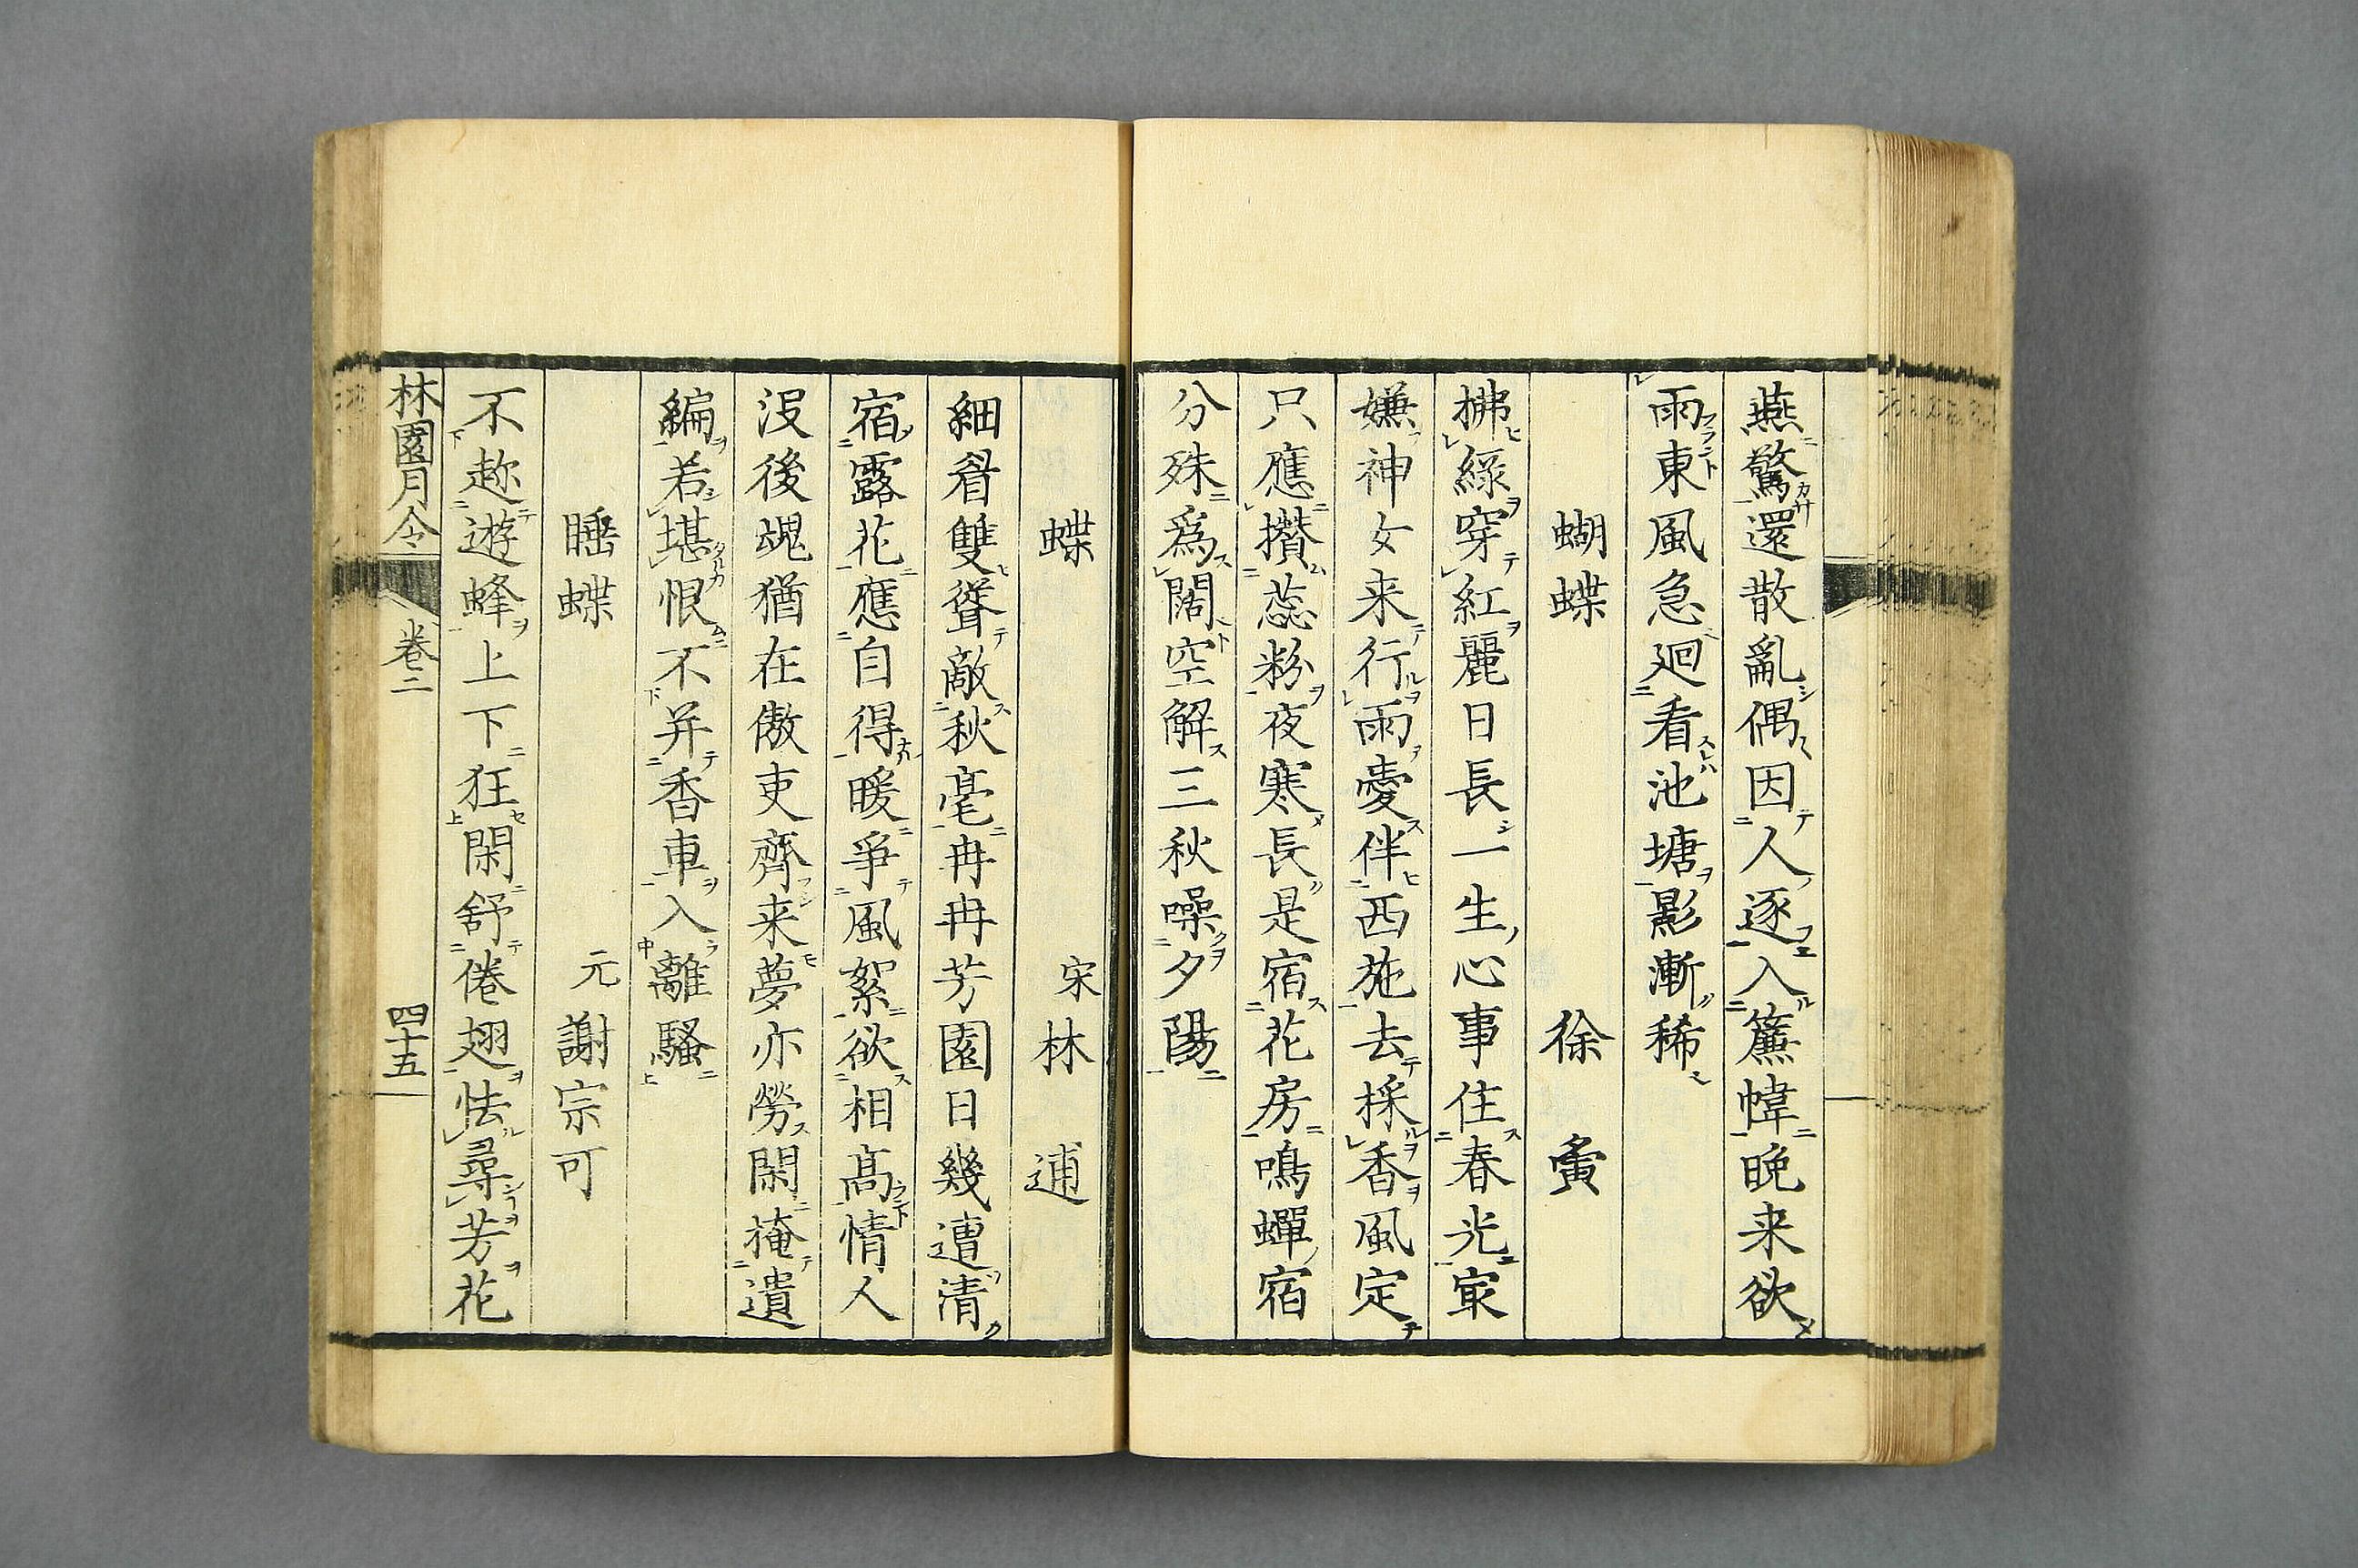 燕驚還散亂偶因人逐入簾幃晩来欲
雨東風急廻看池塘影漸稀
蝴蝶 徐 夤
拂綠穿紅麗日長一生心事住春光冣
嫌神女来行雨愛伴西施去採香風定
只應攢蕊粉夜寒長是宿花房鳴蟬宿
分殊爲闊空解三秋噪夕陽
蝶 宋 林 逋
細眉雙聳敵秋毫冉冉芳園日幾遭清
宿露花應自得暖爭風絮欲相髙情人
沒後魂猶在傲吏齊来夢亦勞閑掩遺
編若堪恨不并香車入離騷
睡蝶 元 謝宗可
不趂遊蜂上下狂閑舒倦翅怯尋芳花
林園月令 卷二 四十五